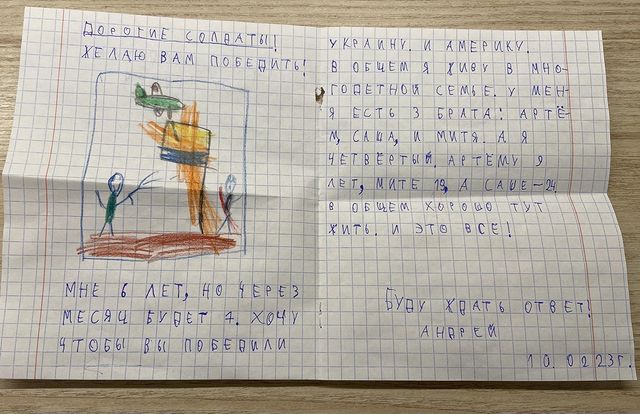 ДОРОГИЕ СОЛДАТЫ!
ЖЕЛАЮ ВАМ ПОБЕДИТЬ!
МНЕ 6 ЛЕТ, НО ЧЕРЕЗ
МЕСЯЦ БУДЕТ 7. ХОЧУ
ЧТОБЫ ВЫ ПОБЕДИЛИ
УКРАИНУ. И АМЕРИКУ.
В ОБЩЕМ Я ЖИВУ В МНО-
ГОДЕТНОЙ СЕМЬЕ. У МЕН-
Я ЕСТЬ 3 БРАТА: АРТЁ-
М, САША, И МИТЯ. А Я
ЧЕТВЁРТЫЙ. АРТЁМУ 9
ЛЕТ, МИТЕ 19, А САШЕ – 24.
В ОБЩЕМ ХОРОШО ТУТ
ЖИТЬ. И ЭТО ВСЕ!
БУДУ ЖДАТЬ ОТВЕТ!
АНДРЕЙ
10.02.23г.